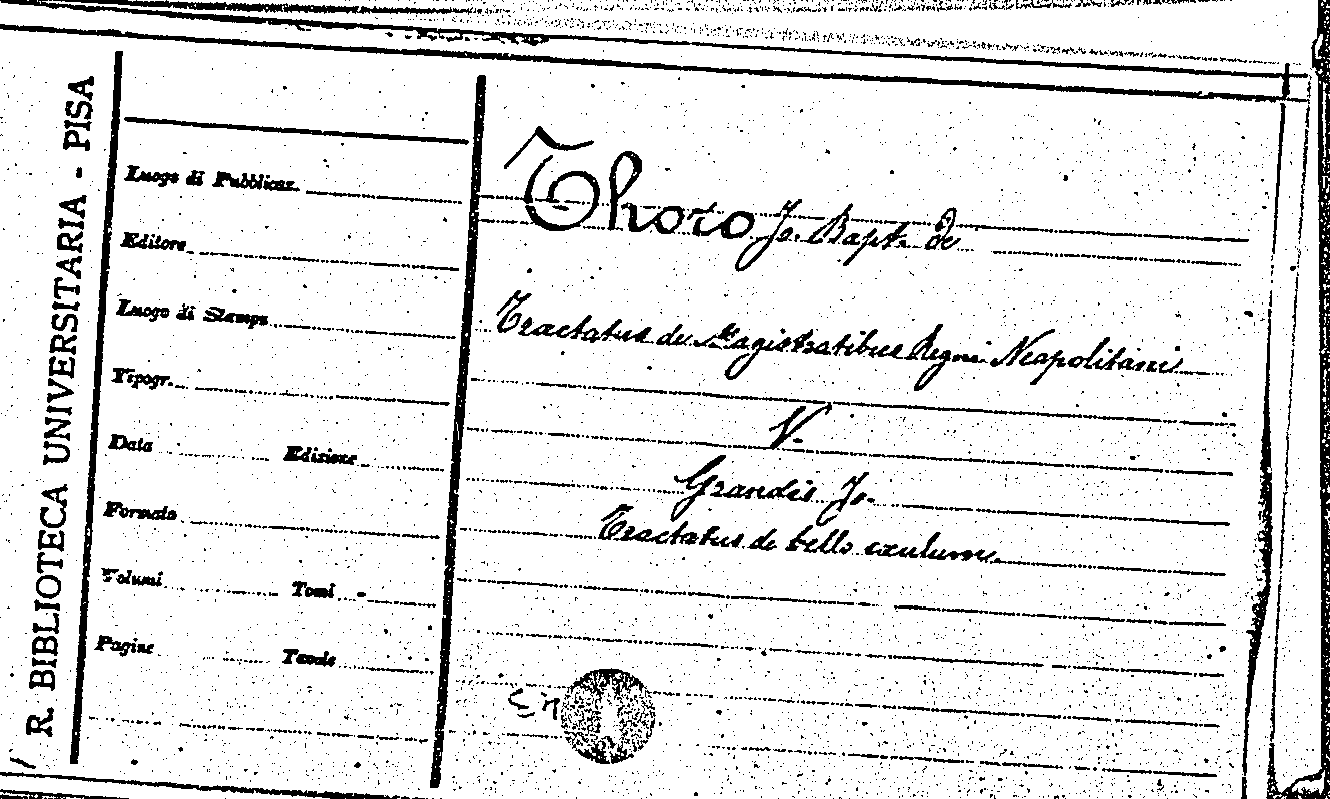 R. BIBLIOTECA UNIVERSITARIA - PISA
Luogo di Pubblicaz.
Editore
Luogo di Stampa
Tipogr.
Data Edizione
Formato
Volumi Tomi -
Pagine Tavole
Thoro Jo. Bapt. de
Tractatus de Magistratibus Regni Neapolitani
V.
Grandis Jo.
Tractatus de bello exulum.